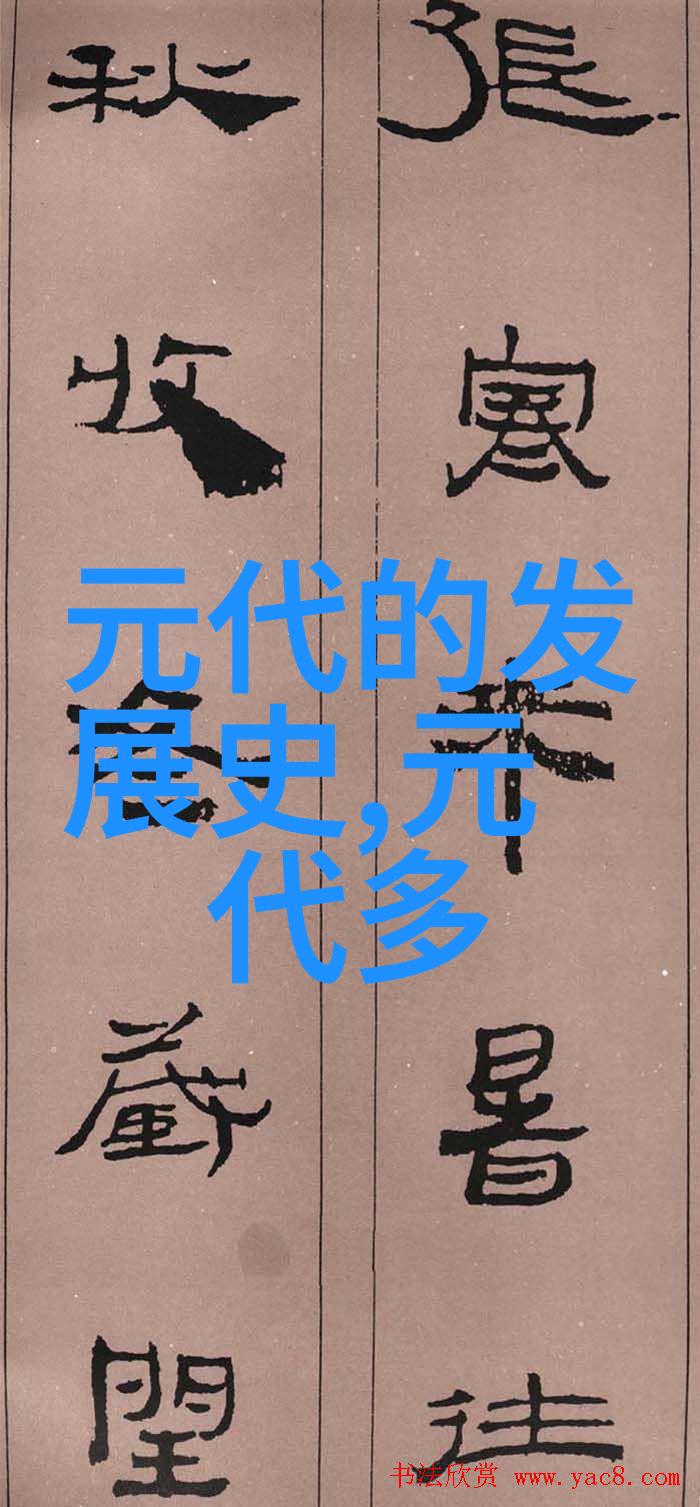 張寒來暑往
秋收冬藏閏
元代的发
展史,元
代多
书法欣赏 www.yac8.com